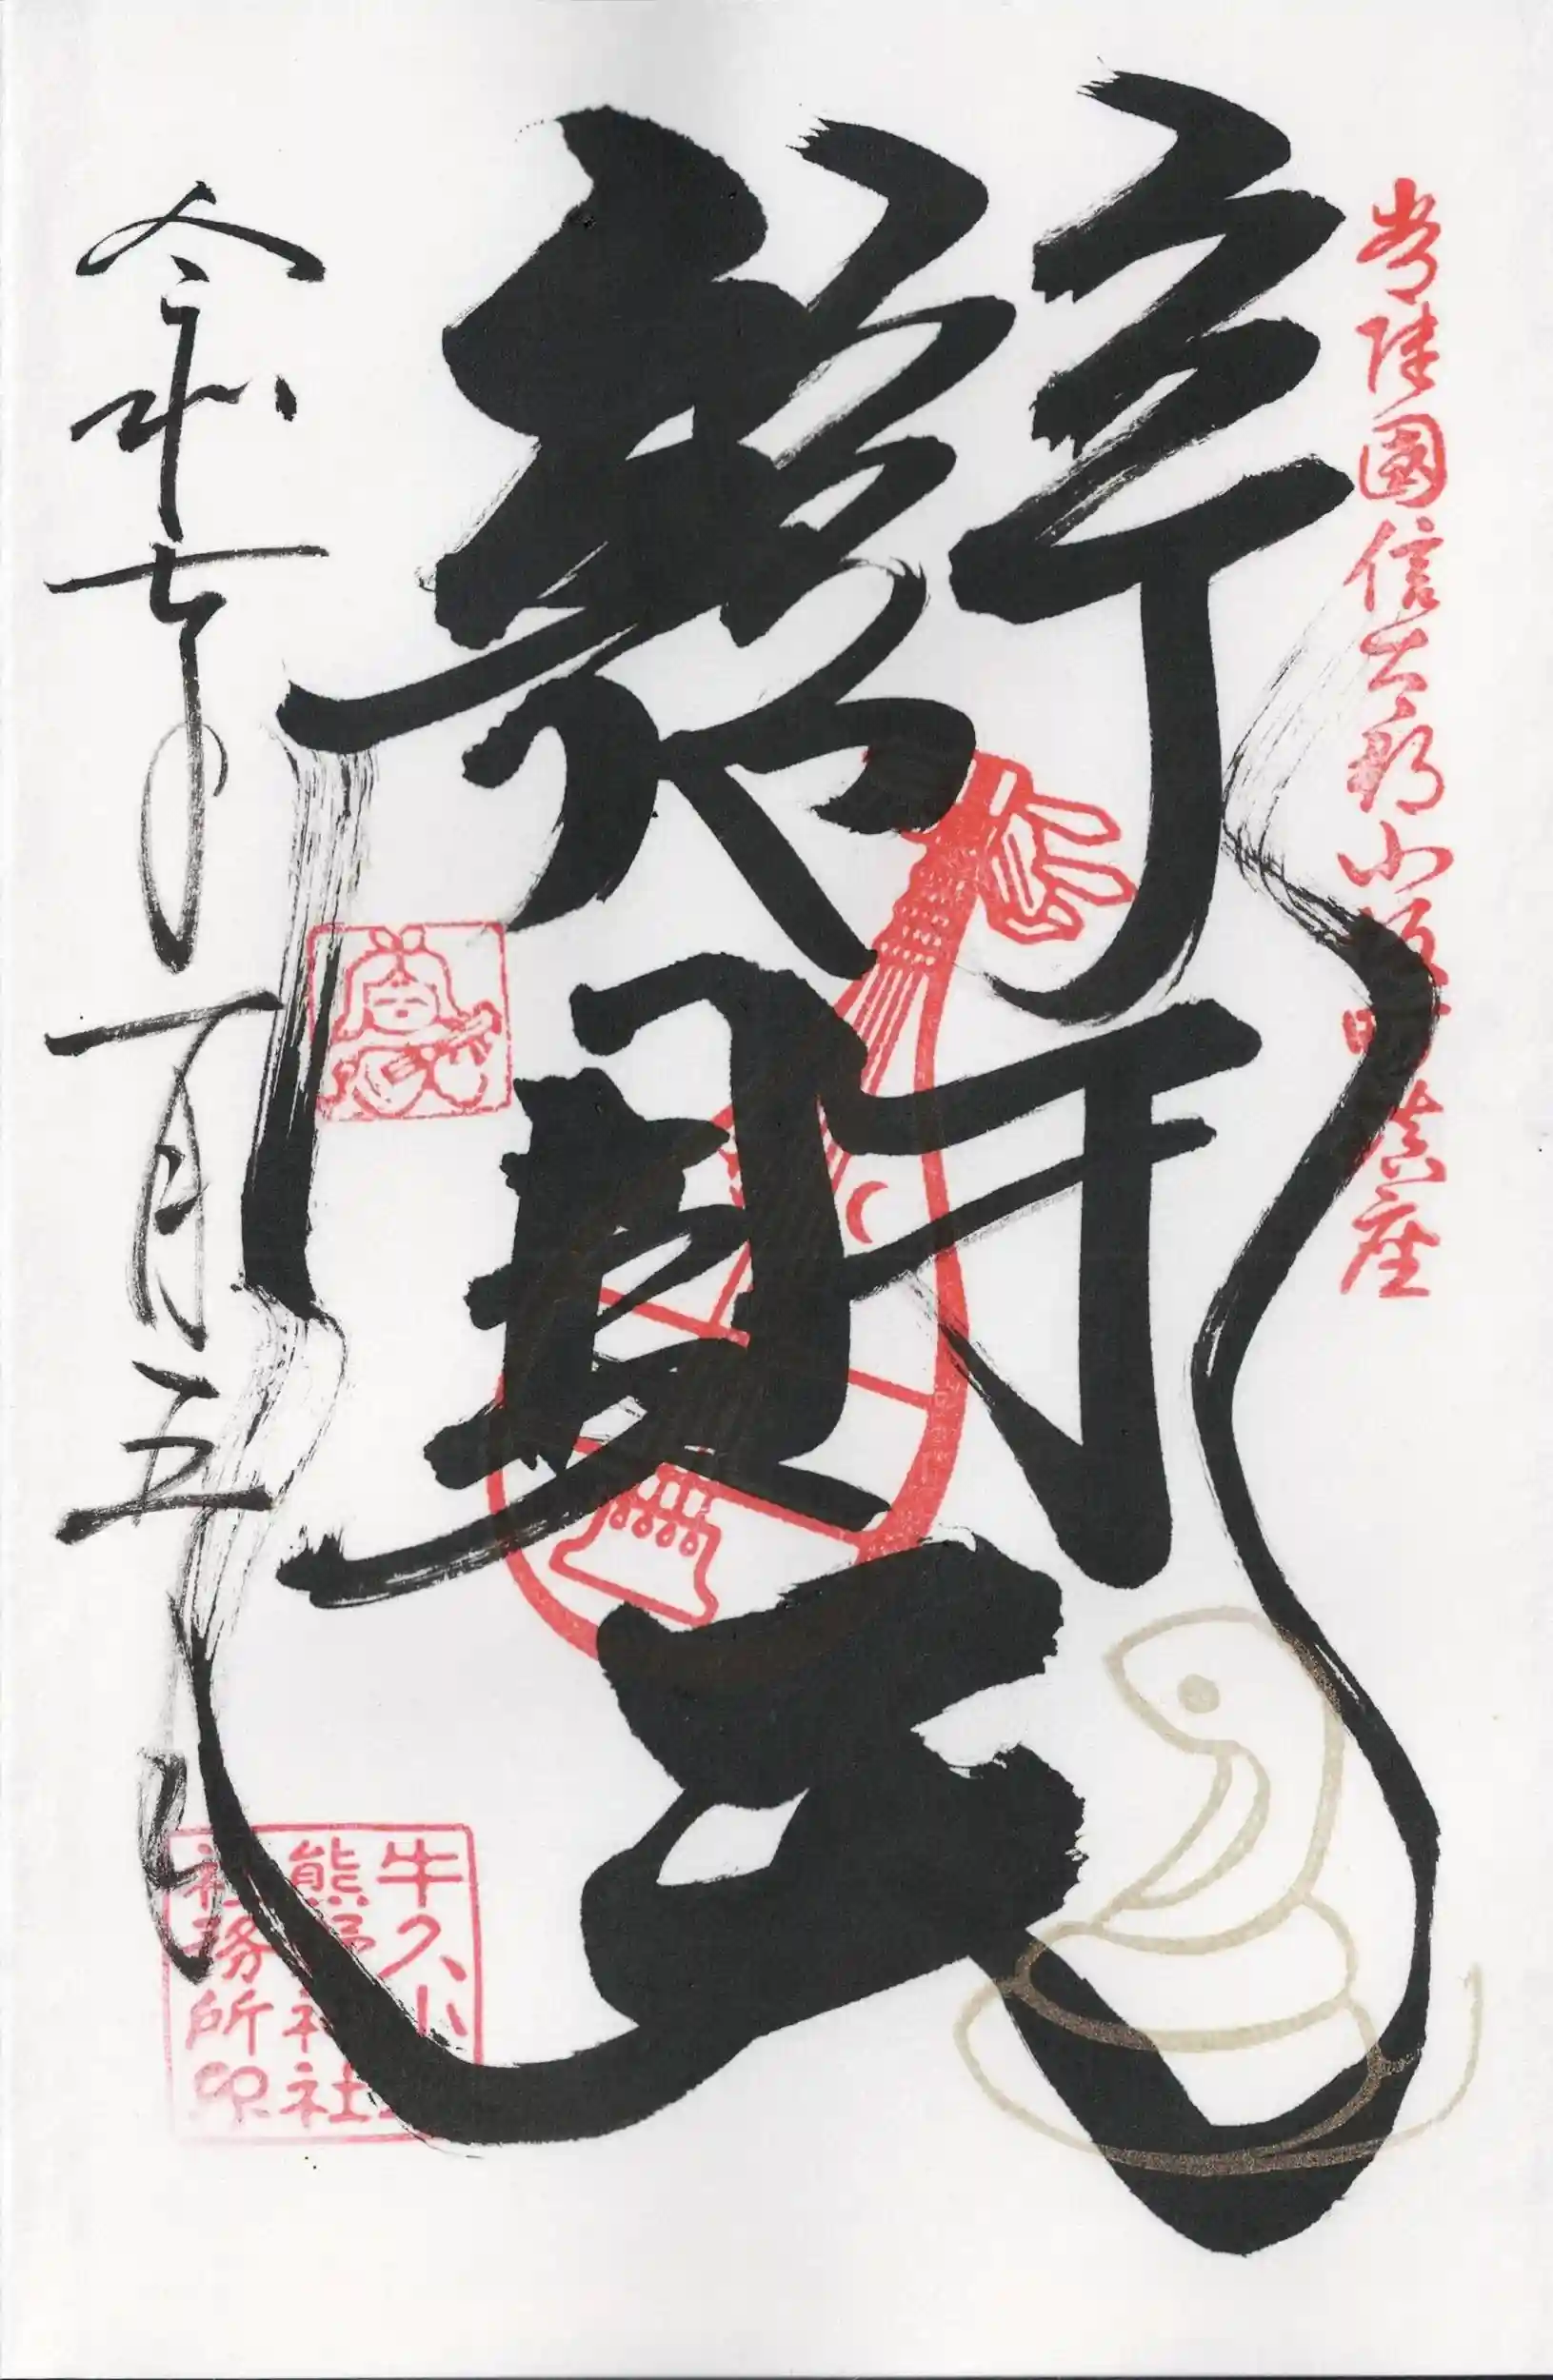 常陸國信太郡小坂町鎮座
辨財天
令和七年一月五日
牛久小坂
熊野神社
社務所印